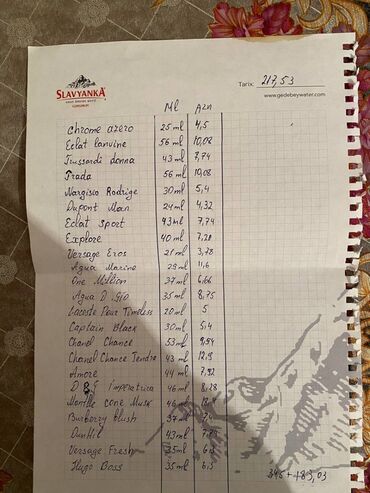 SLAVYANKA
Tarix: 217,53
www.gedebeywater.com
Ml Azn
Chrome azero 25 ml 4,5
Eclat lanvine 56 ml 10,08
Trussardi donna 43 ml 7,74
Prada 56 ml 10,08
Nargisio Rodrige 30 ml 5,4
Dupont Man 24 ml 4,32
Eclat Sport 43 ml 7,74
Explore 40 ml 7,20
Versage Eros 21 ml 3,78
Aqua Marine 29 ml 11,6
One Million 37 ml 6,66
Aqua D. Gio 35 ml 8,75
Lacoste Pour Timeless 20 ml 5
Captain Black 30 ml 5,4
Chanel Chance 53 ml 9,54
Chanel Chance Tendre 43 ml 12,9
Amore 44 ml 7,92
D & Imperatrica 46 ml 8,28
Montale cone Musk 46 ml
Burberry blush ml
Dunhil 43 ml
Versage Fresh 35 ml 6,3
Hugo Boss 35 ml 6,3
345 + 183,03